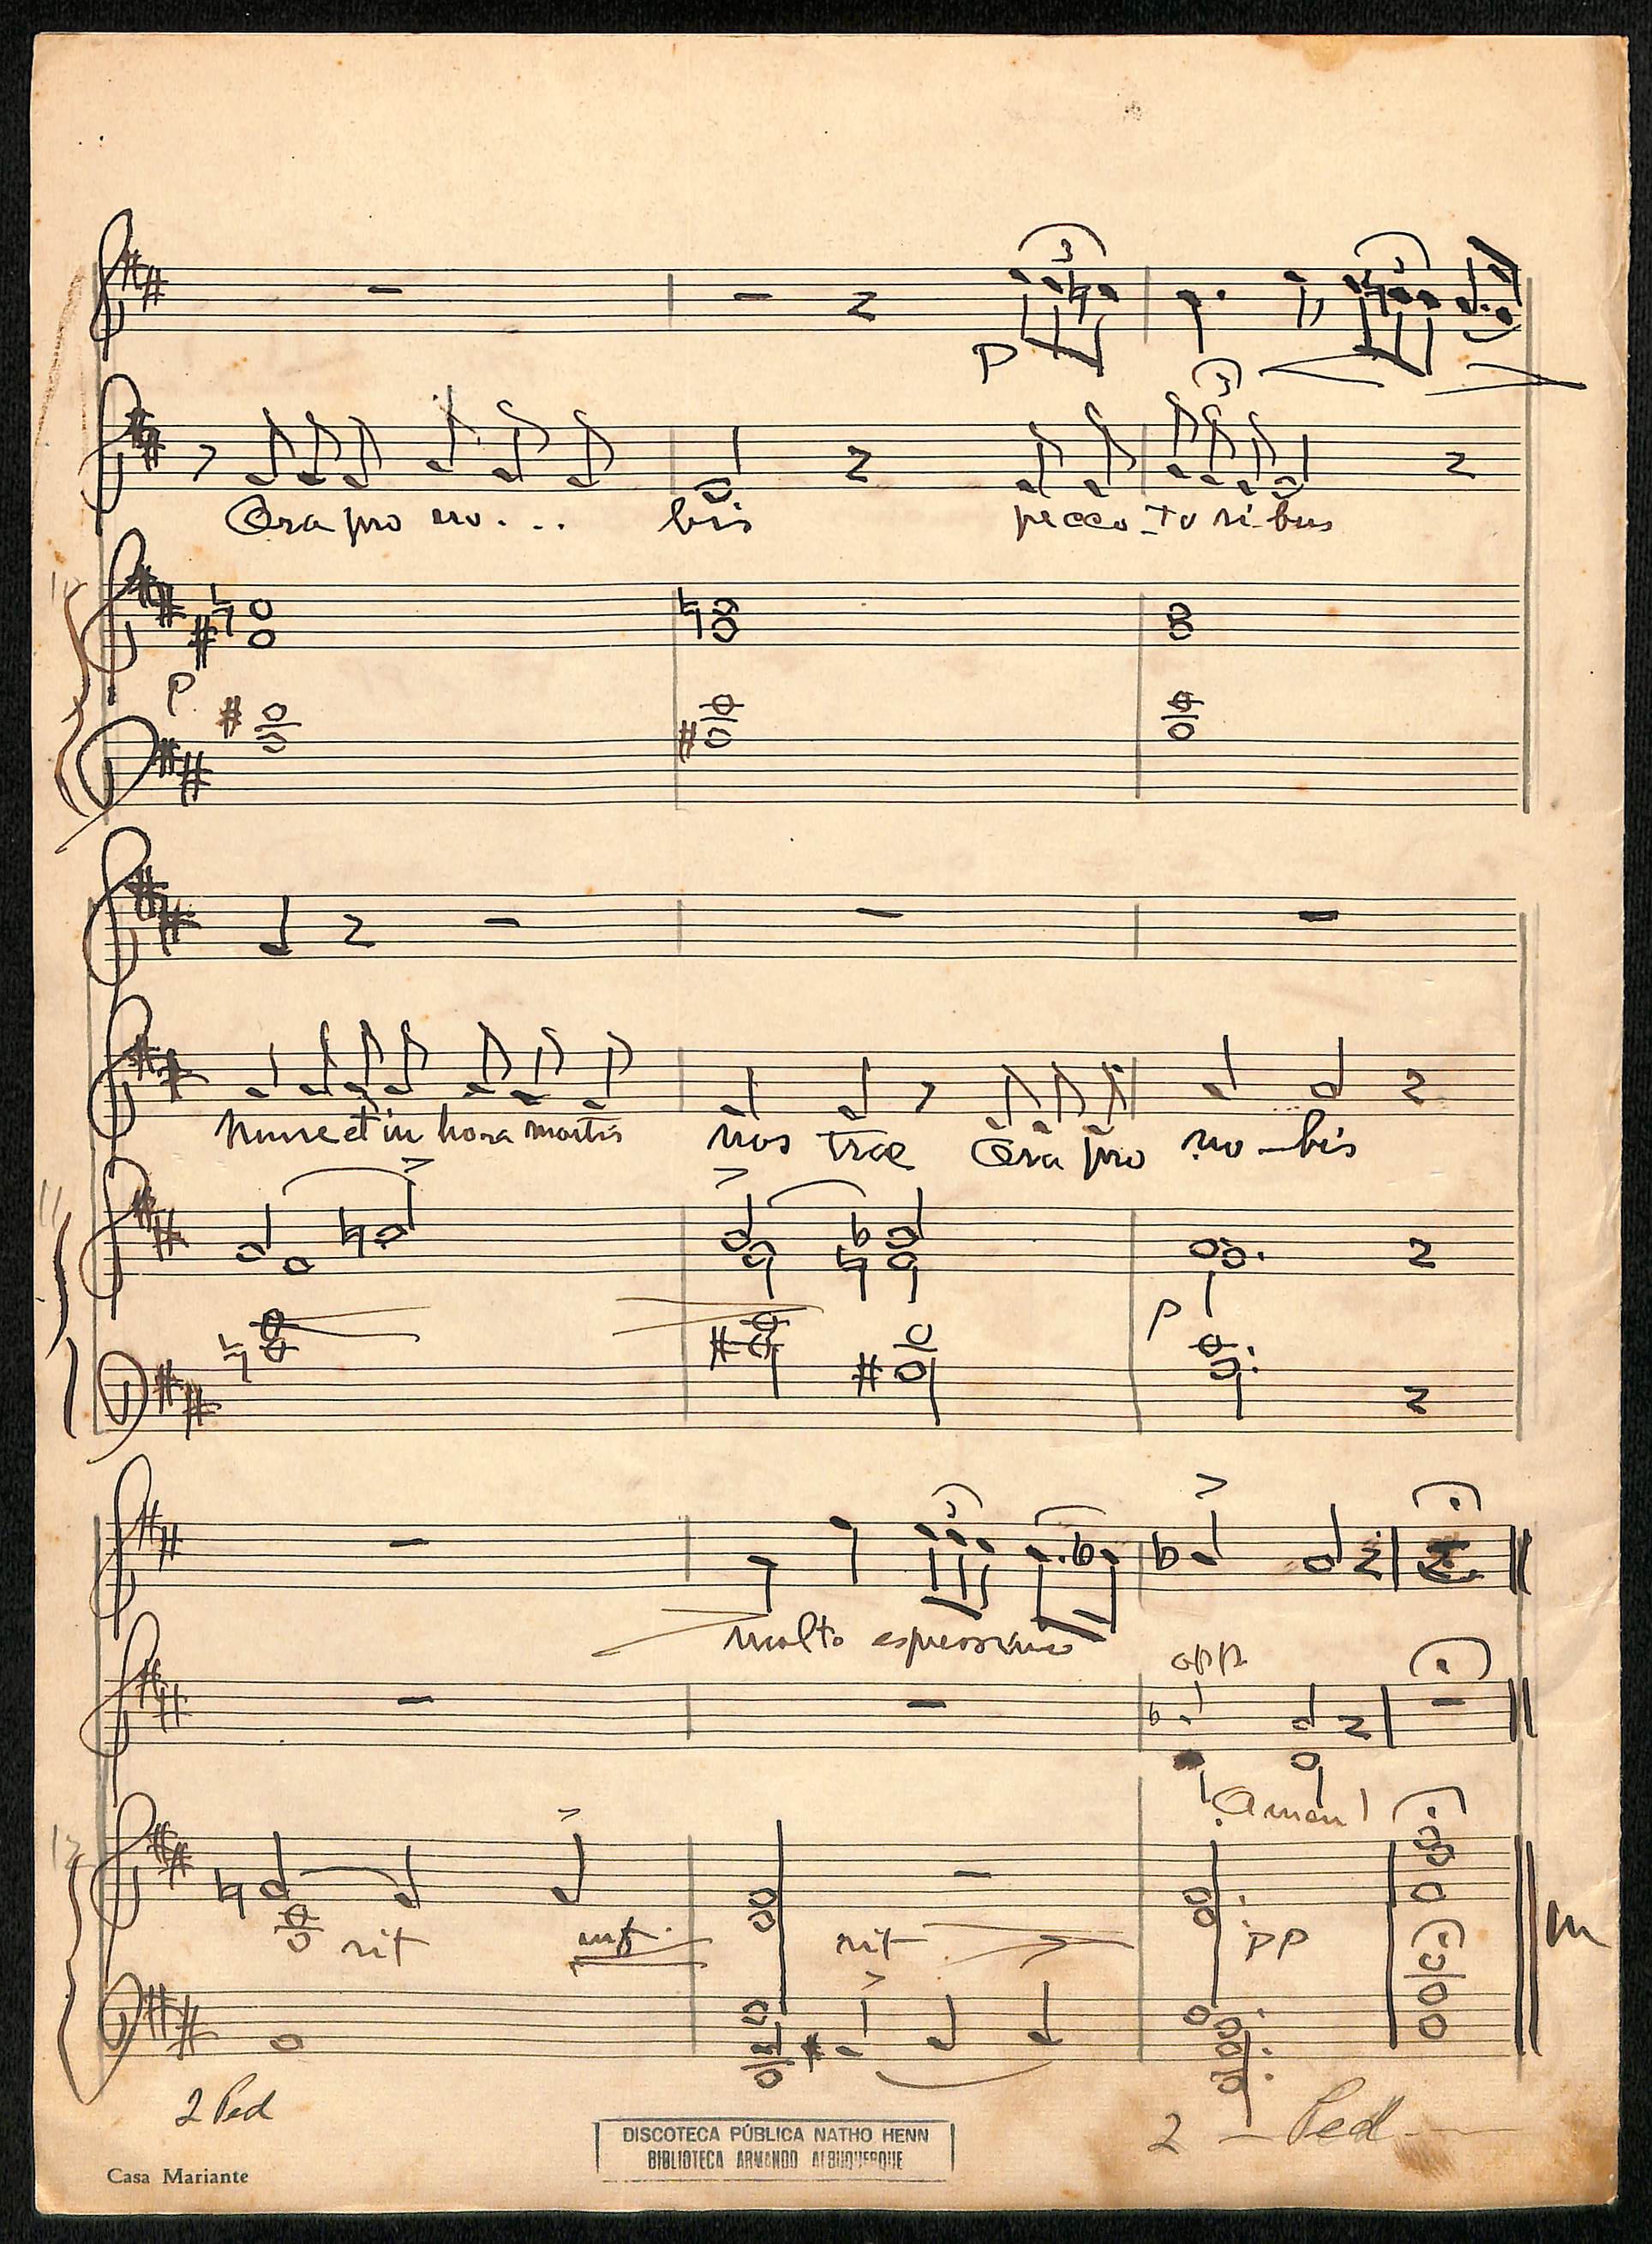 3 3
p
3
Ora pro no... bis pecca-to ri-bus
p
Nunc et in hora mortis nos trae Ora pro no-bis
p
3
molto espressivo
opp
Amen!
rit mf rit pp
2 Ped
2 - Ped -
DISCOTECA PÚBLICA NATHO HENN
BIBLIOTECA ARMANDO ALBUQUERQUE
Casa Mariante